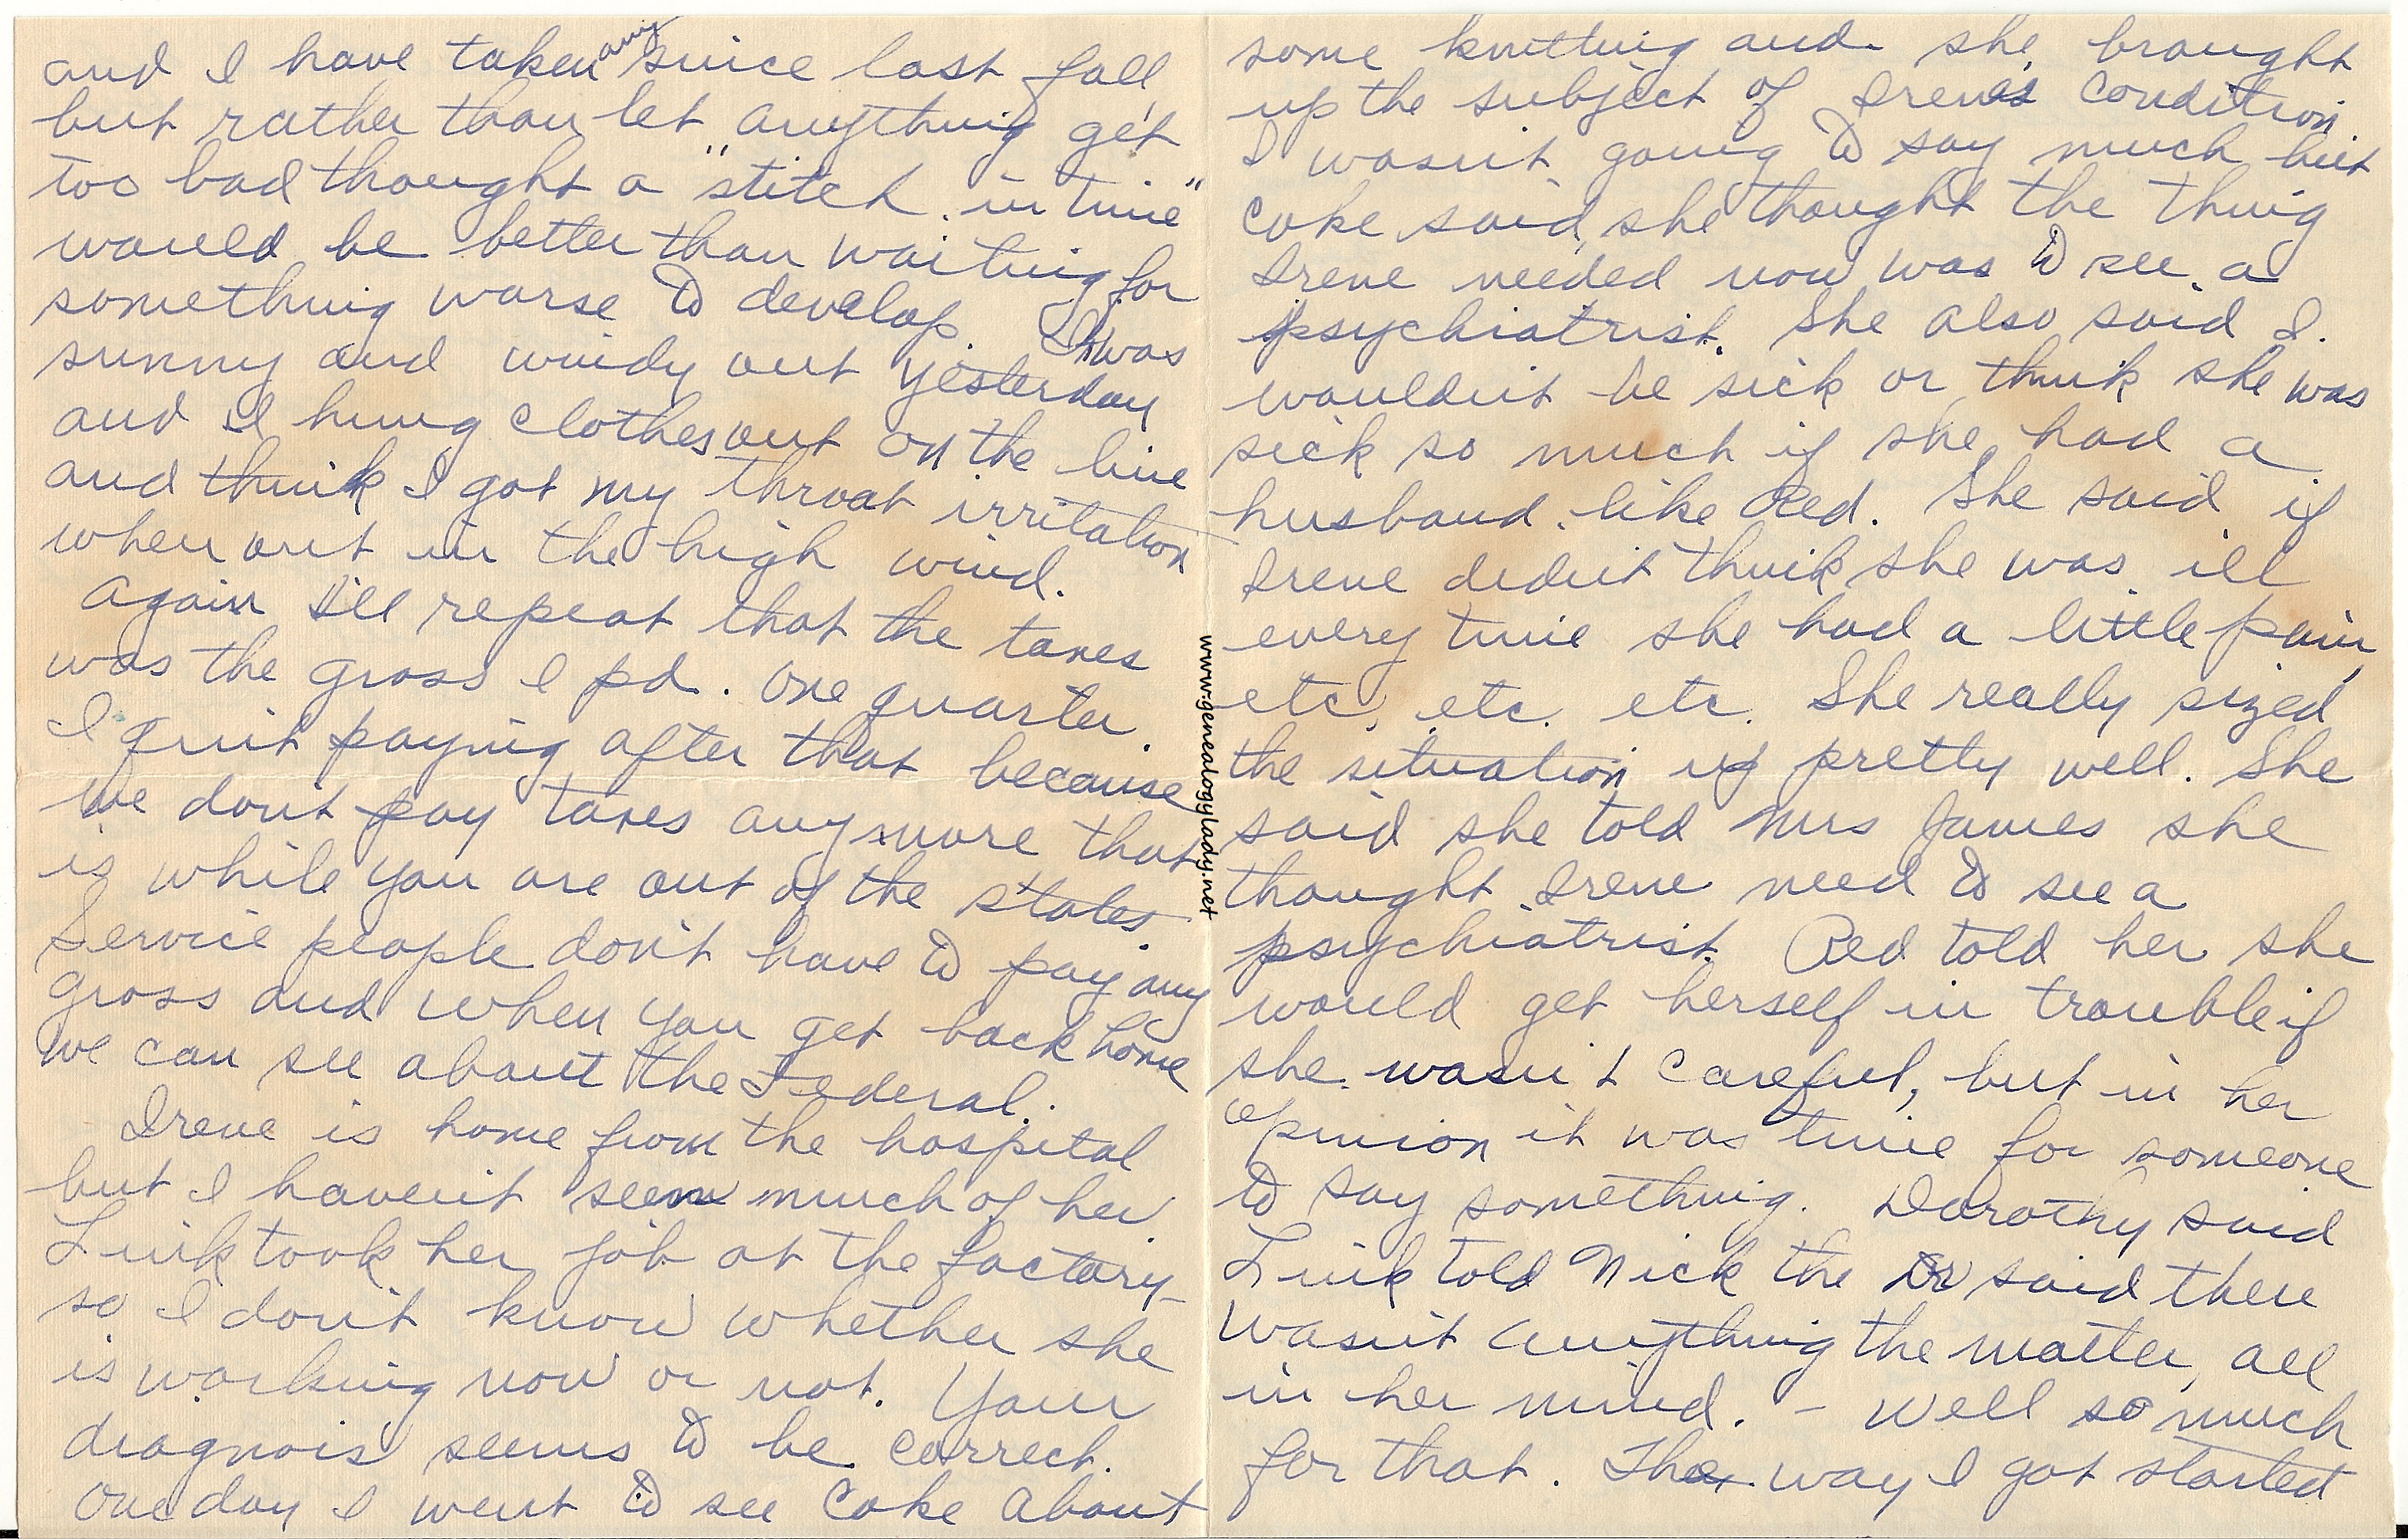 and I have taken any since last fall,
but rather than let anything get
too bad thought a "stitch in time"
would be better than waiting for
something worse to develop. It was
sunny and windy out yesterday
and I hung clothes out on the line
and think I got my throat irritation
when out in the high wind.
Again I'll repeat that the taxes
was the gross I pd. one quarter.
I quit paying after that because
we don't pay taxes anymore that
is while you are out of the states.
Service people don't have to pay any
gross and when you get back home
we can see about the Federal.
Irene is home from the hospital
but I haven't seen much of her
Link took her job at the factory
so I don't know whether she
is working now or not. Your
diagnois seems to be correct.
One day I went to see Coke about
some knitting and she brought
up the subject of Irene's condition.
I wasn't going to say much but
Coke said she thought the thing
Irene needed now was to see a
psychiatrist. She also said I
wouldn't be sick or think she was
sick so much if she had a
husband like Red. She said if
Irene didn't think she was ill
every time she had a little pain,
etc, etc. etc. She really sized
the situation up pretty well. She
said she told Mrs James she
thought Irene need to see a
psychiatrist. Red told her she
would get herself in trouble if
she wasn't careful, but in her
opinion it was time for someone
to say something. Dorothy said
Link told Nick the Dr said there
wasn't anything the matter, all
in her mind. - Well so much
for that. The way I got started
www.genealogylady.net